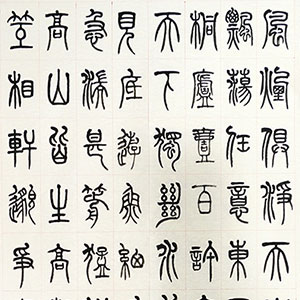 風煙俱淨天
飄蕩任意東
桐廬壹百許
天下獨絕水
見底遊魚細
急湍甚箭猛
高山皆生
互相軒邈爭